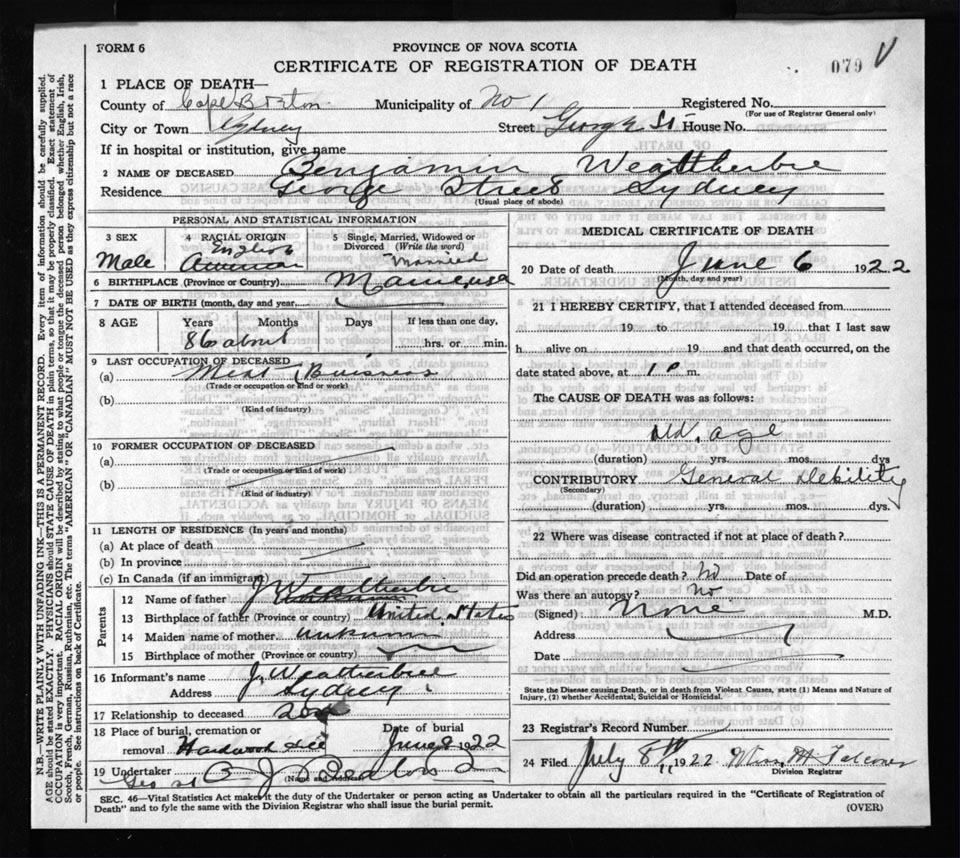 FORM 6
PROVINCE OF NOVA SCOTIA
CERTIFICATE OF REGISTRATION OF DEATH
079 V
1 PLACE OF DEATH—
County of Cape Breton Municipality of No 1 Registered No.
(For use of Registrar General only)
City or Town Sydney Street George St House No.
If in hospital or institution, give name
2 NAME OF DECEASED Benjamin Weatherbie
Residence George Street Sydney
(Usual place of abode)
PERSONAL AND STATISTICAL INFORMATION
3 SEX 4 RACIAL ORIGIN 5 Single, Married, Widowed or Divorced (Write the word)
Male English American Married
6 BIRTHPLACE (Province or Country) Maine, USA
7 DATE OF BIRTH (month, day and year)
8 AGE Years Months Days If less than one day,
86 about hrs. or min.
9 LAST OCCUPATION OF DECEASED
(a) Meat Business
(Trade or occupation or kind or work)
(b)
(Kind of industry)
10 FORMER OCCUPATION OF DECEASED
(a)
(Trade or occupation or kind of work)
(b)
(Kind of industry)
11 LENGTH OF RESIDENCE (In years and months)
(a) At place of death
(b) In province
(c) In Canada (if an immigrant)
Parents
12 Name of father J Weatherbie
13 Birthplace of father (Province or country) United States
14 Maiden name of mother unknown
15 Birthplace of mother (Province or country)
16 Informant's name J. Weatherbee
Address Sydney
17 Relationship to deceased son
18 Place of burial, cremation or removal Hardwood Hill Date of burial June 8 1922
19 Undertaker A J Beaton
Geo St (Name and address)
MEDICAL CERTIFICATE OF DEATH
20 Date of death June 6 1922
(Month, day and year)
21 I HEREBY CERTIFY, that I attended deceased from
19 to 19 that I last saw
h alive on 19 and that death occurred, on the
date stated above, at 10 m.
The CAUSE OF DEATH was as follows:
old age
(duration) yrs. mos. dys
CONTRIBUTORY General Debility
(Secondary)
(duration) yrs. mos. dys.
22 Where was disease contracted if not at place of death?
Did an operation precede death? No Date of
Was there an autopsy? No
(Signed) None M.D.
Address
Date
State the Disease causing Death, or in death from Violent Causes, state (1) Means and Nature of Injury, (2) whether Accidental, Suicidal or Homicidal.
23 Registrar's Record Number
24 Filed July 8th 1922 Wm. H Falconer
Division Registrar
SEC. 46—Vital Statistics Act makes it the duty of the Undertaker or person acting as Undertaker to obtain all the particulars required in the "Certificate of Registration of
Death" and to fyle the same with the Division Registrar who shall issue the burial permit. (OVER)
N.B.—WRITE PLAINLY WITH UNFADING INK—THIS IS A PERMANENT RECORD. Every item of information should be carefully supplied.
AGE should be stated EXACTLY. PHYSICIANS should STATE CAUSE OF DEATH in plain terms, so that it may be properly classified. Exact statement of
OCCUPATION is very important. RACIAL ORIGIN will be described by stating to what people or tongue the deceased person belonged whether English, Irish,
Scotch, French, German, Russian, Ruthenian, etc. The terms "AMERICAN" OR "CANADIAN" MUST NOT BE USED as they express citizenship but not a race
or people. See instructions on back of Certificate.